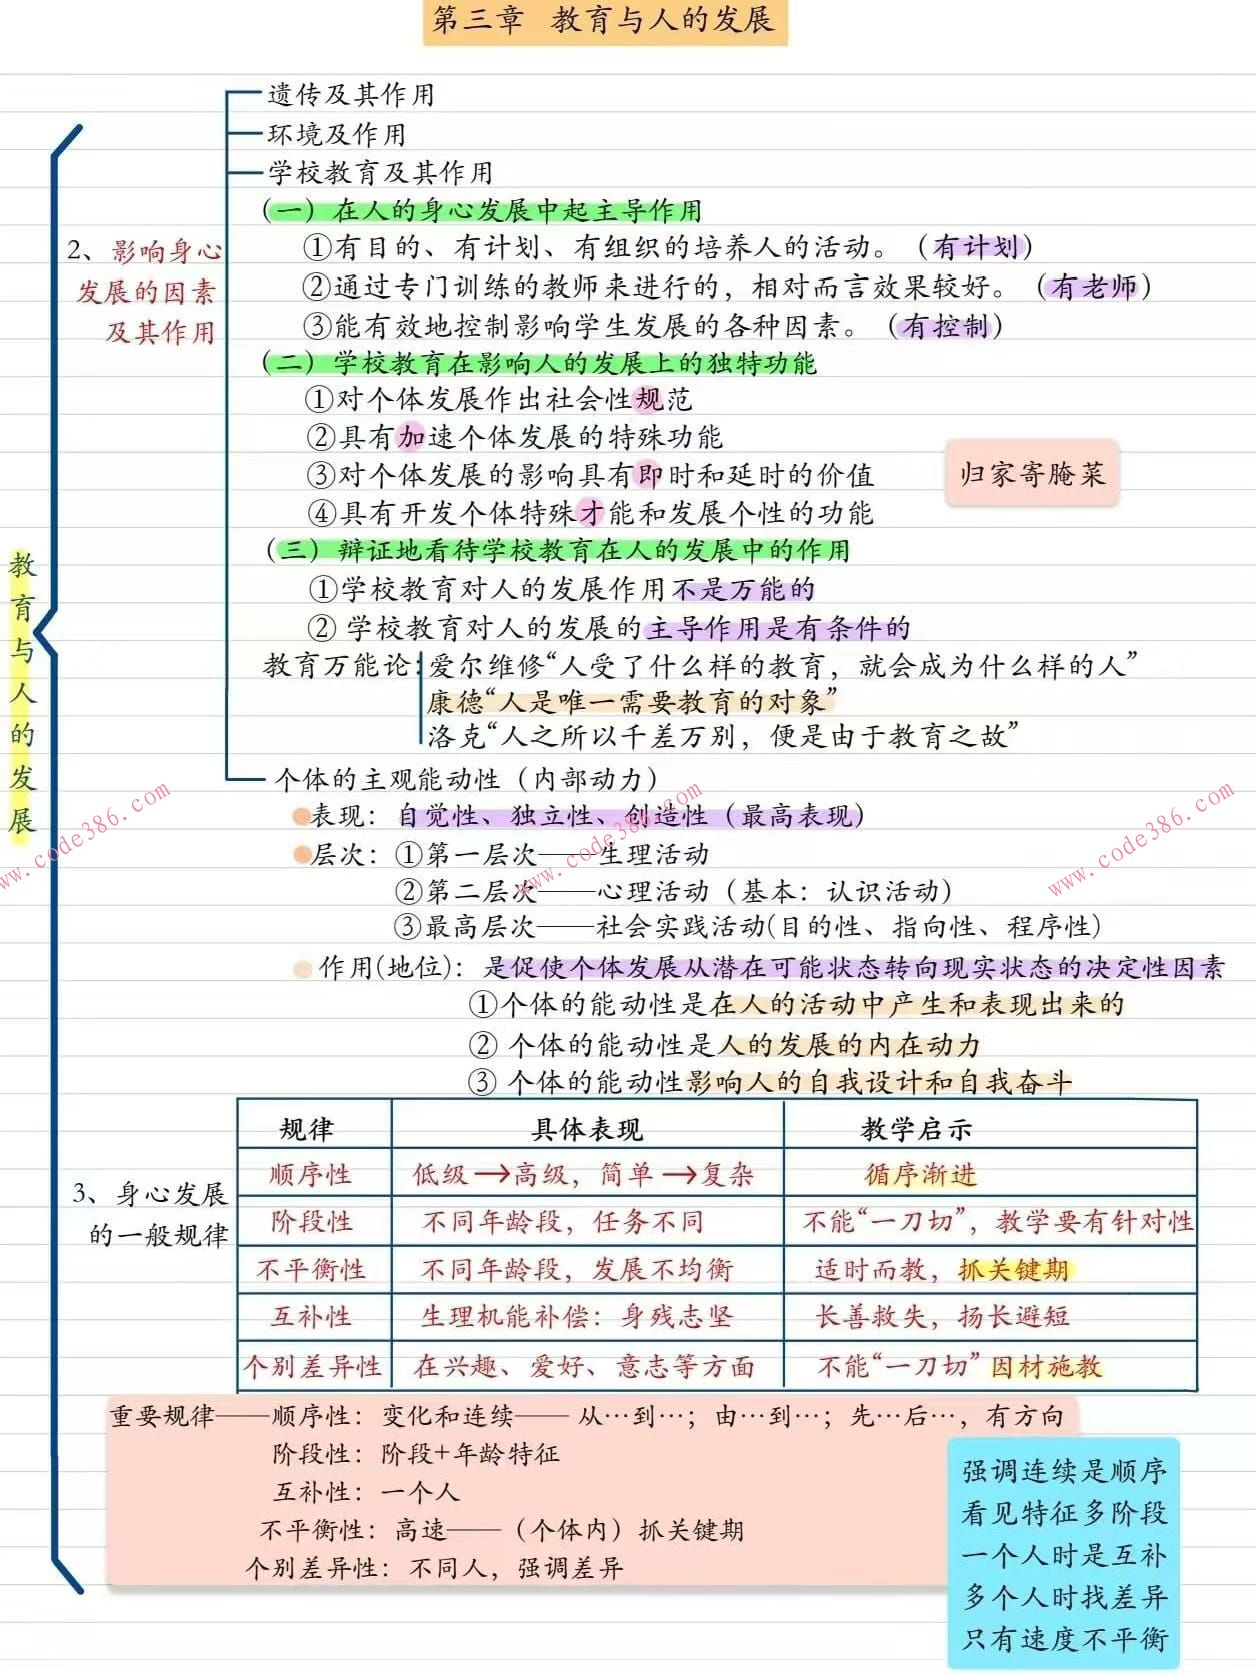 第三章 教育与人的发展
遗传及其作用
环境及作用
学校教育及其作用
2、影响身心
发展的因素
及其作用
(一)在人的身心发展中起主导作用
①有目的、有计划、有组织的培养人的活动。(有计划)
②通过专门训练的教师来进行的,相对而言效果较好。(有老师)
③能有效地控制影响学生发展的各种因素。(有控制)
(二)学校教育在影响人的发展上的独特功能
①对个体发展作出社会性规范
②具有加速个体发展的特殊功能
③对个体发展的影响具有即时和延时的价值
④具有开发个体特殊才能和发展个性的功能
归家寄腌菜
(三)辩证地看待学校教育在人的发展中的作用
①学校教育对人的发展作用不是万能的
② 学校教育对人的发展的主导作用是有条件的
教育万能论:爱尔维修“人受了什么样的教育,就会成为什么样的人”
康德“人是唯一需要教育的对象”
洛克“人之所以千差万别,便是由于教育之故”
教育与人的发展
个体的主观能动性(内部动力)
表现:自觉性、独立性、创造性(最高表现)
层次:①第一层次——生理活动
②第二层次——心理活动(基本:认识活动)
③最高层次——社会实践活动(目的性、指向性、程序性)
作用(地位):是促使个体发展从潜在可能状态转向现实状态的决定性因素
①个体的能动性是在人的活动中产生和表现出来的
② 个体的能动性是人的发展的内在动力
③ 个体的能动性影响人的自我设计和自我奋斗
www.code386.com
www.code386.com
www.code386.com
3、身心发展
的一般规律
规律 具体表现 教学启示
顺序性 低级→高级,简单→复杂 循序渐进
阶段性 不同年龄段,任务不同 不能“一刀切”,教学要有针对性
不平衡性 不同年龄段,发展不均衡 适时而教,抓关键期
互补性 生理机能补偿:身残志坚 长善救失,扬长避短
个别差异性 在兴趣、爱好、意志等方面 不能“一刀切”因材施教
重要规律——顺序性:变化和连续—— 从…到…;由…到…;先…后…,有方向
阶段性:阶段+年龄特征
互补性:一个人
不平衡性:高速——(个体内)抓关键期
个别差异性:不同人,强调差异
强调连续是顺序
看见特征多阶段
一个人时是互补
多个人时找差异
只有速度不平衡